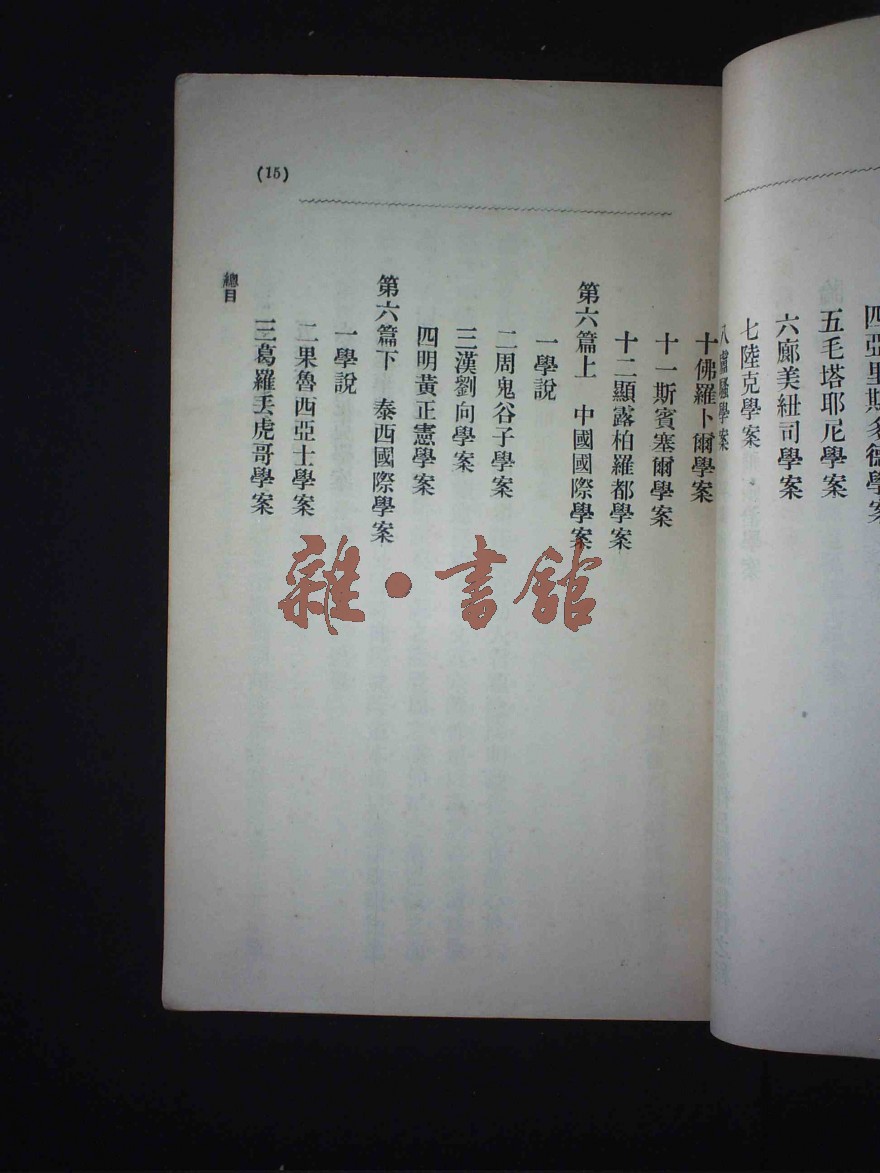 四亞里斯多德學案
五毛塔耶尼學案
六廊美紐司學案
七陸克學案
八盧騷學案
十佛羅卜爾學案
十一斯賓塞爾學案
十二顯露柏羅都學案
第六篇上　中國國際學案
一學說
二周鬼谷子學案
三漢劉向學案
四明黃正憲學案
第六篇下　泰西國際學案
一學說
二果魯西亞士學案
三葛羅丟虎哥學案
總目
(15)
雜·書館